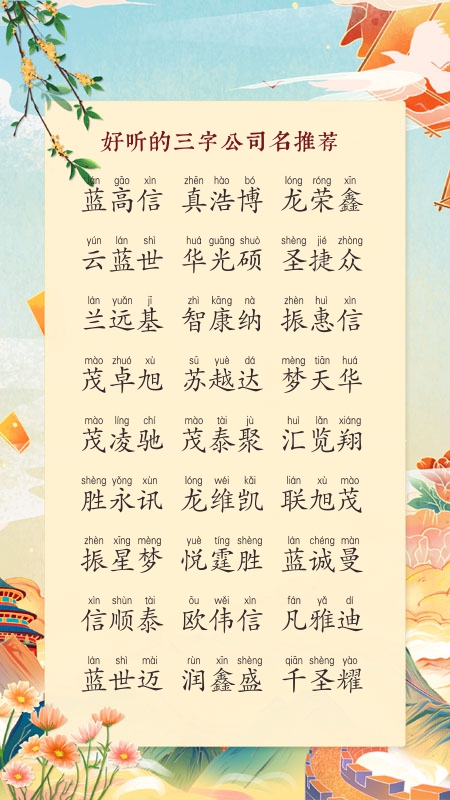 好听的三字公司名推荐
lán gāo xìn zhēn hào bó lóng róng xīn
蓝高信 真浩博 龙荣鑫
yún lán shì huá guāng shuò shèng jié zhòng
云蓝世 华光硕 圣捷众
lán yuǎn jī zhì kāng nà zhèn huì xìn
兰远基 智康纳 振惠信
mào zhuó xù sū yuè dá mèng tiān huá
茂卓旭 苏越达 梦天华
mào líng chí mào tài jù huì lǎn xiáng
茂凌驰 茂泰聚 汇览翔
shèng yǒng xùn lóng wéi kǎi lián xù mào
胜永讯 龙维凯 联旭茂
zhèn xīng mèng yuè tíng shèng lán chéng màn
振星梦 悦霆胜 蓝诚曼
xìn shùn tài ōu wěi xìn fán yǎ dí
信顺泰 欧伟信 凡雅迪
lán shì mài rùn xīn shèng qiān shèng yào
蓝世迈 润鑫盛 千圣耀